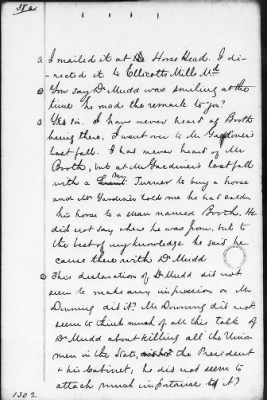 38 a
A I mailed it at Horse Head. I di-
rected it to Ellicotts Mills Md.
Q You say Dr Mudd was smiling at the
time he made the remark to you?
A Yes sir. I have never heard of Booth
being there. I went over to Mr Gardiner's
last fall. I has never heard of Mr
Booth, but at Mr Gardiner's last fall
with a Mr Turner to buy a horse
and Mr Gardiner told me he had sold
his horse to a man named Booth. He
did not say where he was from, but to
the best of my knowledge he said he
came there with Dr Mudd
Q This declaration of Dr Mudd did not
seem to make any impression on Mr
Downing did it? Mr Downing did not
seem to think much of all this talk of
Dr Mudd about killing all the Union
men in the State, the President
& his Cabinet, he did not seem to
attach much importance to it?
1302